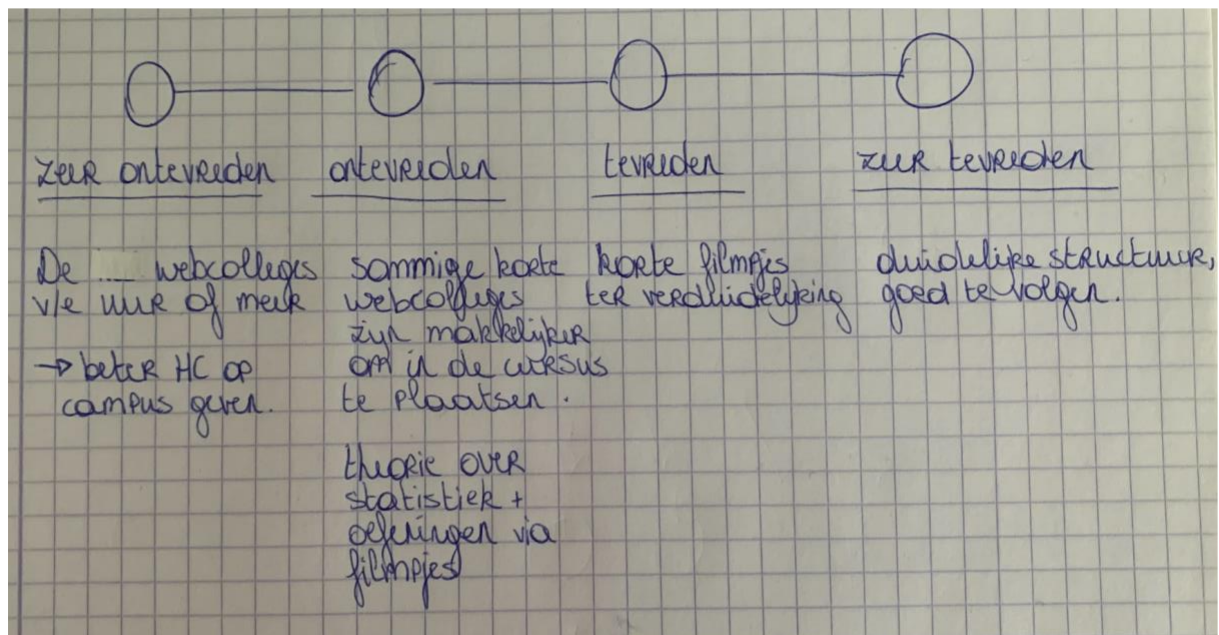 zeer ontevreden
ontevreden
tevreden
zeer tevreden
De webcolleges
v/e uur of meer
→ beter HC op
campus geven.
sommige korte
webcolleges
zijn makkelijker
om in de cursus
te plaatsen.
theorie over
statistiek +
oefeningen via
filmpjes
korte filmpjes
ter verduidelijking
duidelijke structuur,
goed te volgen.